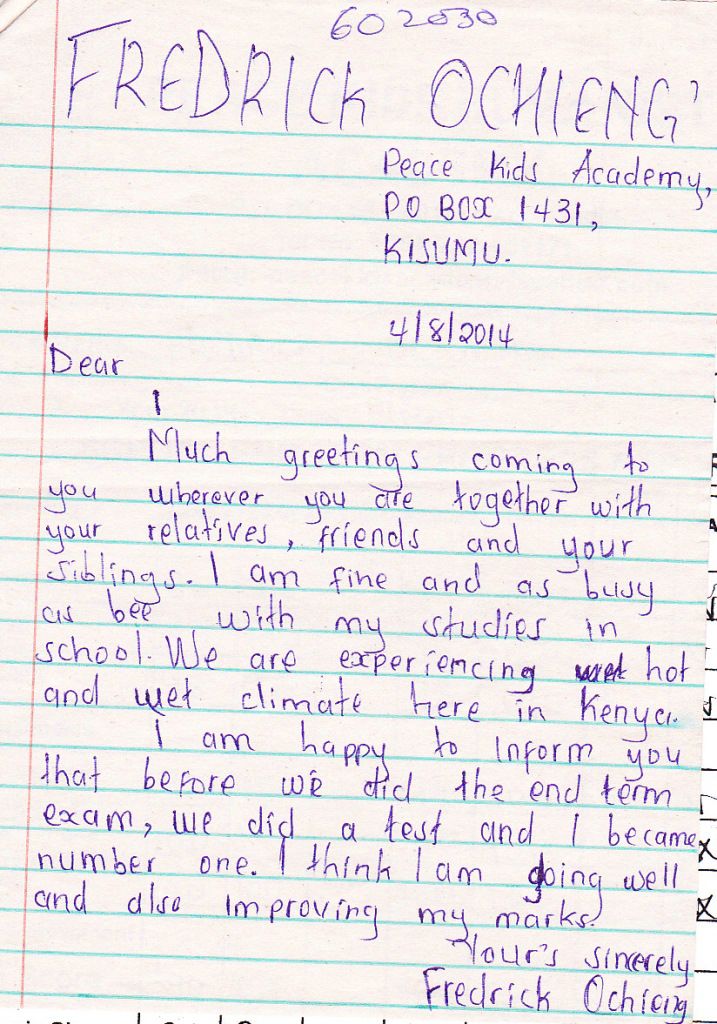 602030
FREDRICK OCHIENG'
Peace Kids Academy,
PO BOX 1431,
KISUMU.
4/8/2014
Dear
I
Much greetings coming to
you wherever you are together with
your relatives, friends and your
siblings. I am fine and as busy
as bee with my studies in
school. We are experiencing wet hot
and wet climate here in Kenya.
I am happy to inform you
that before we did the end term
exam, we did a test and I became
number one. I think I am doing well
and also improving my marks.
Your's sincerely
Fredrick Ochieng